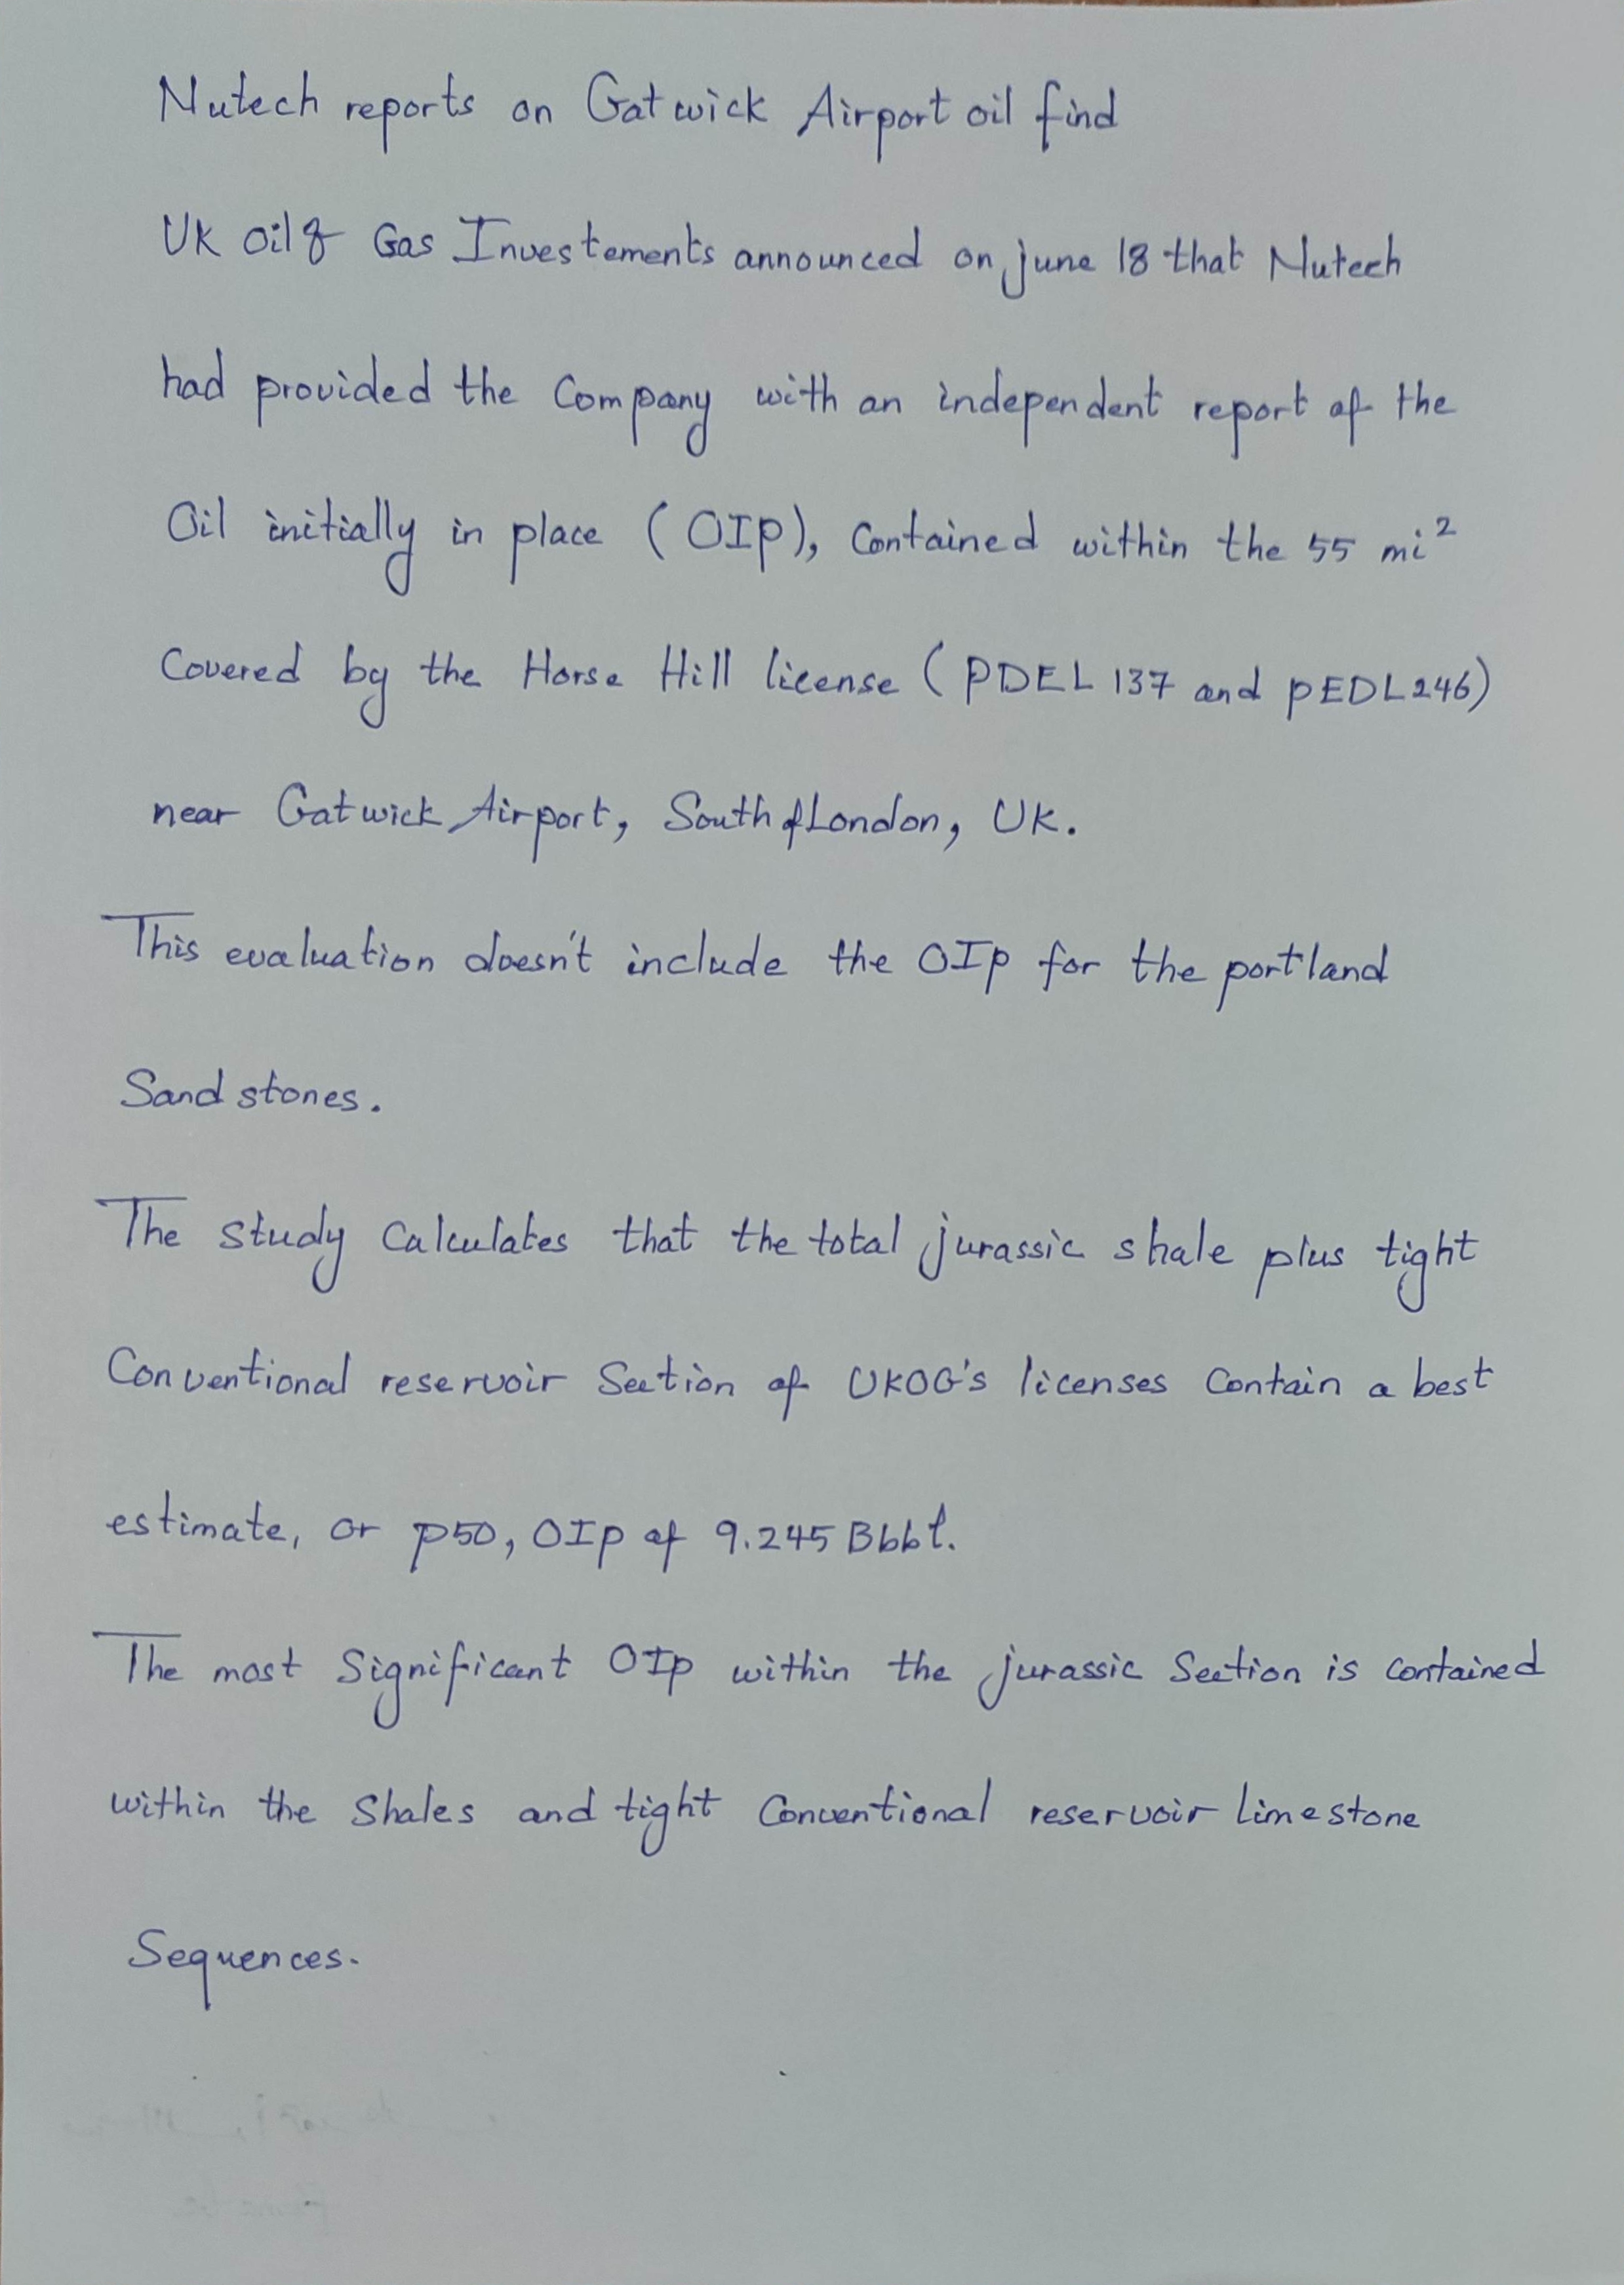 Nutech reports on Gatwick Airport oil find
UK Oil & Gas Investements announced on june 18 that Nutech
had provided the Company with an independent report of the
Oil initially in place (OIP), Contained within the 55 mi²
Covered by the Horse Hill license (PDEL 137 and pEDL246)
near Gatwick Airport, South of London, UK.
This evaluation doesn't include the OIp for the portland
Sand stones.
The study Calculates that the total jurassic shale plus tight
Conventional reservoir Section of UKOG's licenses Contain a best
estimate, or p50, OIp of 9.245 Bbbl.
The most Significant OIp within the jurassic Section is contained
within the Shales and tight Conventional reservoir limestone
Sequences.